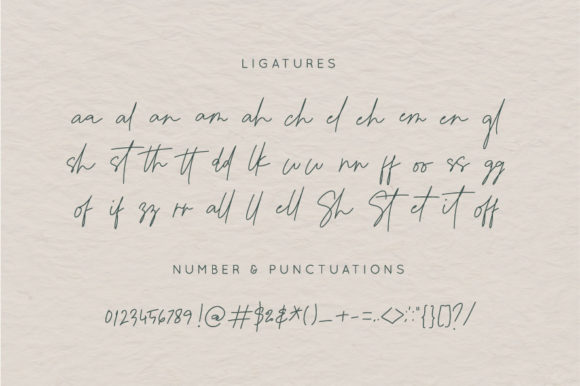 LIGATURES
aa al an am ah ch el eh em en gl
sh st th tt dd lk nn ff oo ss gg
of if zz rr all ll ell Sh St et it off
NUMBER & PUNCTUATIONS
0123456789!@#$&*()_+-=,.<>;':"{}[]?/